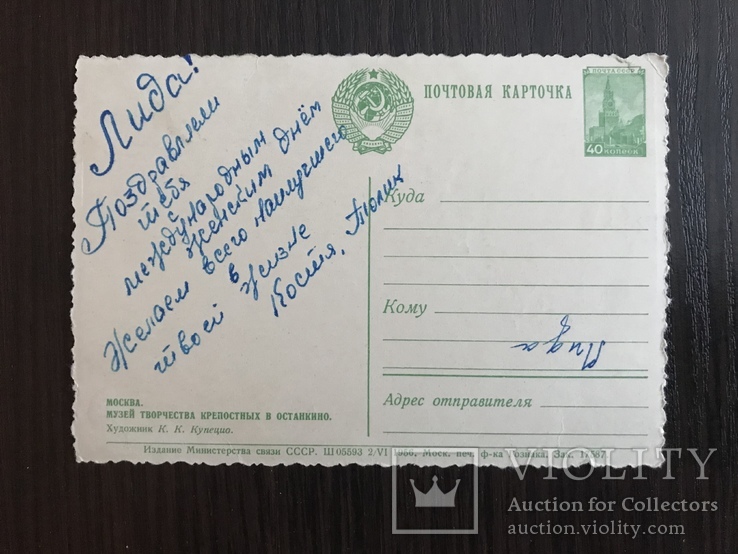 Лида!
Поздравляем
тебя
международным
женским днём
Желаем всего наилучшего
в
твоей жизне
Костя, Толик
ПОЧТОВАЯ КАРТОЧКА
ПОЧТА СССР
40 КОПЕЕК
Куда
Кому
Лида
Адрес отправителя
МОСКВА.
МУЗЕЙ ТВОРЧЕСТВА КРЕПОСТНЫХ В ОСТАНКИНО.
Художник К. К. Купецио.
Издание Министерства связи СССР. Ш 05593 2/VI 1956. Моск. печ. ф-ка Гознака. Зак.
VIOLITY
Auction for Collectors
auction.violity.com